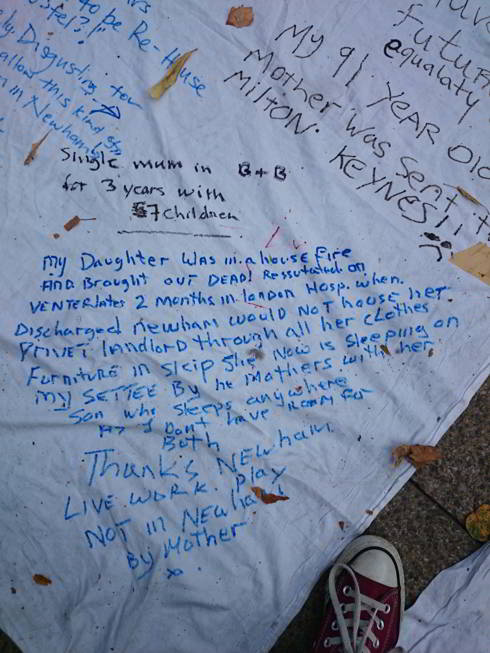 to be Re-House
Disgusting for
allow this kind of
in Newham
Futur
equalaty
My 91 YEAR OLD
Mother was sent to
MILTON
KEYNES!!
Single mum in B+B
for 3 years with
7 children
My Daughter was in a house fire
AND Brought out DEAD! Ressutatated on
VENTERlates 2 months in london Hosp. when.
Discharged Newham would Not house her
Privet landlord through all her clothes
Furniture in skip she Now is sleeping on
my SETTEE By he Mothers with her
Son who sleeps anywhere
As I Don't have room for
Both
Thanks Newham
LIVE work play
NOT in Newham
By Mother
x.